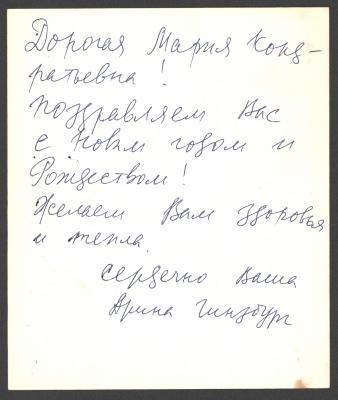 Дорогая Мария Конд-
ратьевна!
Поздравляем Вас
с Новым годом и
Рождеством!
Желаем Вам здоровья
и тепла.
Сердечно Ваша
Арина Гинзбург